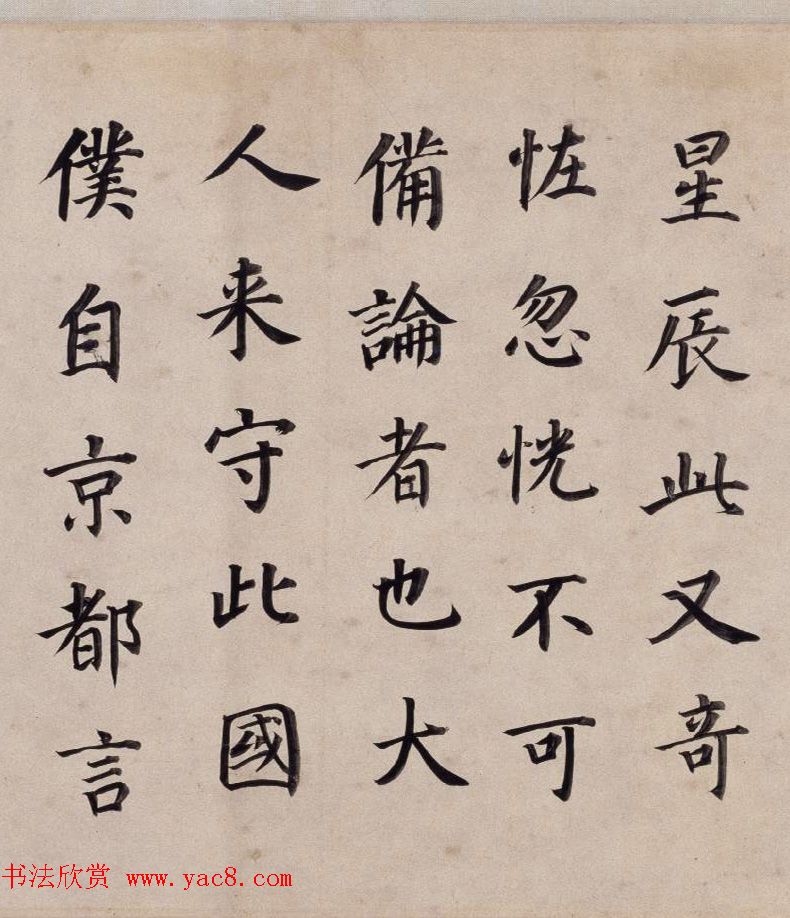 星辰此又奇
恠忽恍不可
備論者也大
人来守此國
僕自京都言
书法欣赏 www.yac8.com